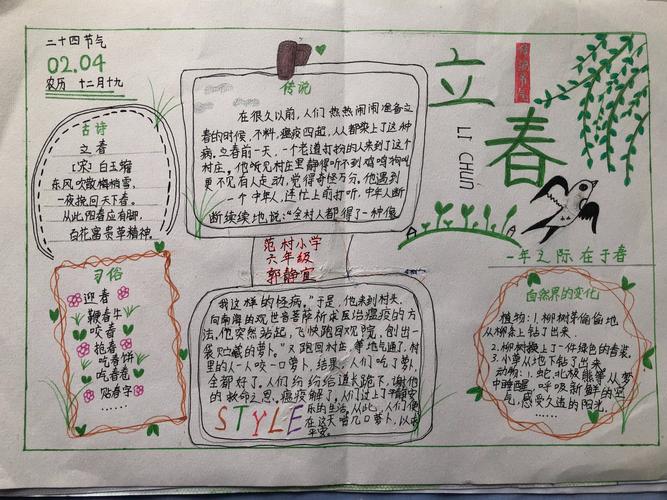 二十四节气
02.04
农历 十二月十九
古诗
立春
[宋] 白玉蟾
东风吹散梅梢雪,
一夜挽回天下春。
从此阳春应有脚,
百花富贵草精神。
习俗
迎春
鞭春牛
咬春
抱春
吃春饼
吃春卷
贴春字
……
传说
在很久以前,人们热热闹闹准备立
春的时候,不料,瘟疫四起,人人都染上了这种
病。立春前一天,一个老道打扮的人来到了这个
村庄。他
听见村庄里静得听不到鸡鸣狗叫
更不见有人走动,觉得奇怪万分。他遇到
一个中年人,连忙上前打听,中年人断
断续续地说:“全村人都得了一种像
范村小学
六年级
郭静宜
我这样的怪病。”于是,他来到村头,
向南海的观世音菩萨祈求医治瘟疫的方
法。他突然站起,飞快跑回观院,刨出一
袋贮藏的萝卜。又跑回村庄,等地气通了,村
里的人一人咬一口萝卜,结果,人们吃了萝卜,
全都好了。人们纷纷给道长跪下,谢他
的救命之恩。瘟疫解了,人们过上了平静安
乐的生活,从此,人们便
在这天啃几口萝卜,以求
平安。
STYLE
立春
LI CHUN
传统节气
一年之际在于春
自然界的变化
植物:1.柳树芽偷偷地
从柳条上钻了出来。
2.柳树换上了一件绿色的春装。
3.小草从地下钻了出来
动物:1.蛇、北极熊等从梦
中睡醒,呼吸新鲜的空
气,感受久违的阳光。
……